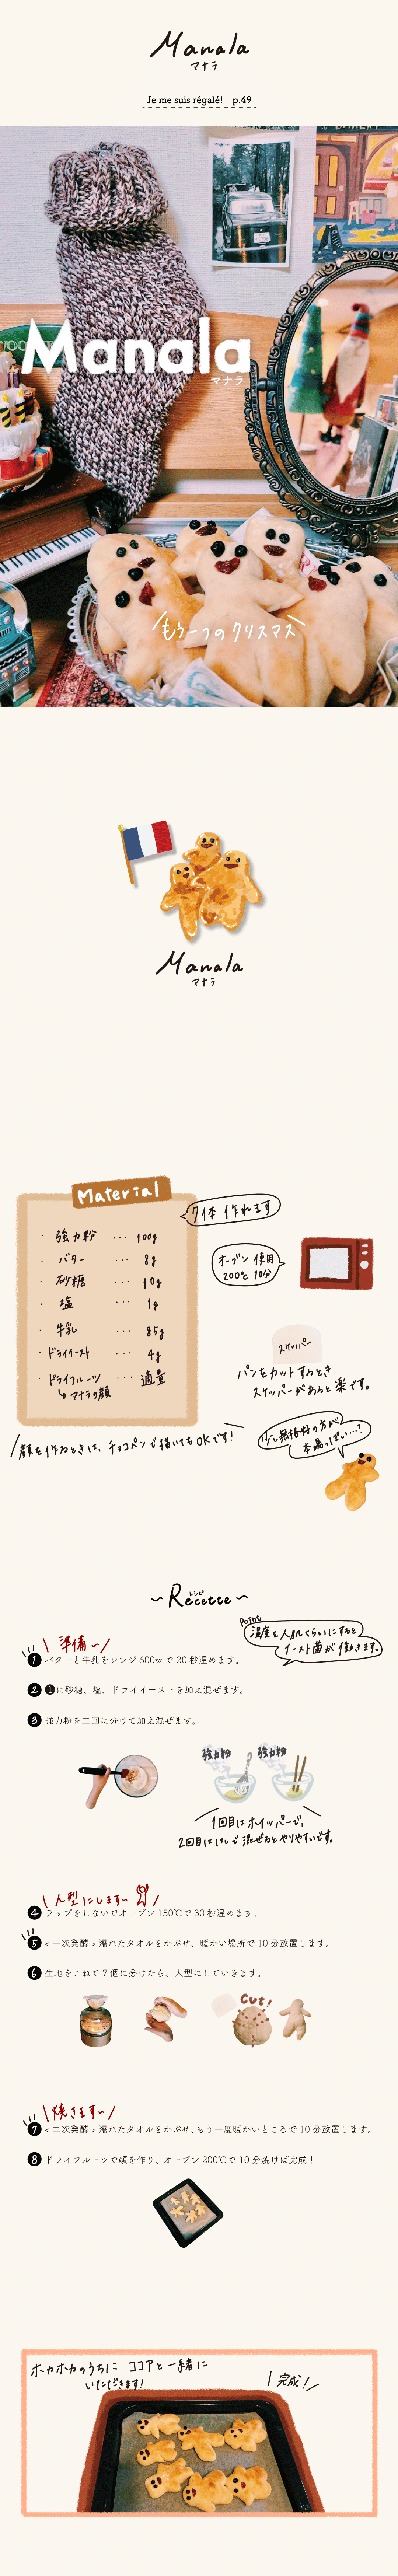 Manala
マナラ
Je me suis régalé! p.49
Manala
マナラ
もう一つのクリスマス
Manala
マナラ
Material
7体 作れます
・ 強力粉 … 100g
・ バター … 8g
・ 砂糖 … 10g
・ 塩 … 1g
・ 牛乳 … 85g
・ ドライイースト … 4g
・ ドライフルーツ … 適量
マナラの顔
オーブン使用
200℃ 10分
スケッパー
パンをカットするとき
スケッパーがあると楽です。
顔を作るときは、チョコペンで描いてもOKです!
少し無格好の方が
本場っぽい…?
~Recette~
レシピ
準備~
Point
温度を人肌くらいにすると
イースト菌が働きます。
❶ バターと牛乳をレンジ 600w で 20 秒温めます。
❷ ❶に砂糖、塩、ドライイーストを加え混ぜます。
❸ 強力粉を二回に分けて加え混ぜます。
強力粉
強力粉
1回目はホイッパーで、
2回目ははしで混ぜるとやりやすいです。
人型にします~
❹ ラップをしないでオーブン 150℃で 30 秒温めます。
❺ < 一次発酵 > 濡れたタオルをかぶせ、暖かい場所で 10 分放置します。
❻ 生地をこねて 7 個に分けたら、人型にしていきます。
Cut!
焼きます~
❼ < 二次発酵 > 濡れたタオルをかぶせ、もう一度暖かいところで 10 分放置します。
❽ ドライフルーツで顔を作り、オーブン 200℃で 10 分焼けば完成！
ホカホカのうちに ココアと一緒に
いただきます!
完成!